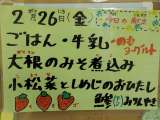 2月26日(金) 今日の献立
ごはん・牛乳・のむヨーグルト
大根のみそ煮込み
小松菜としめじのおひたし
鯵のみりんやき